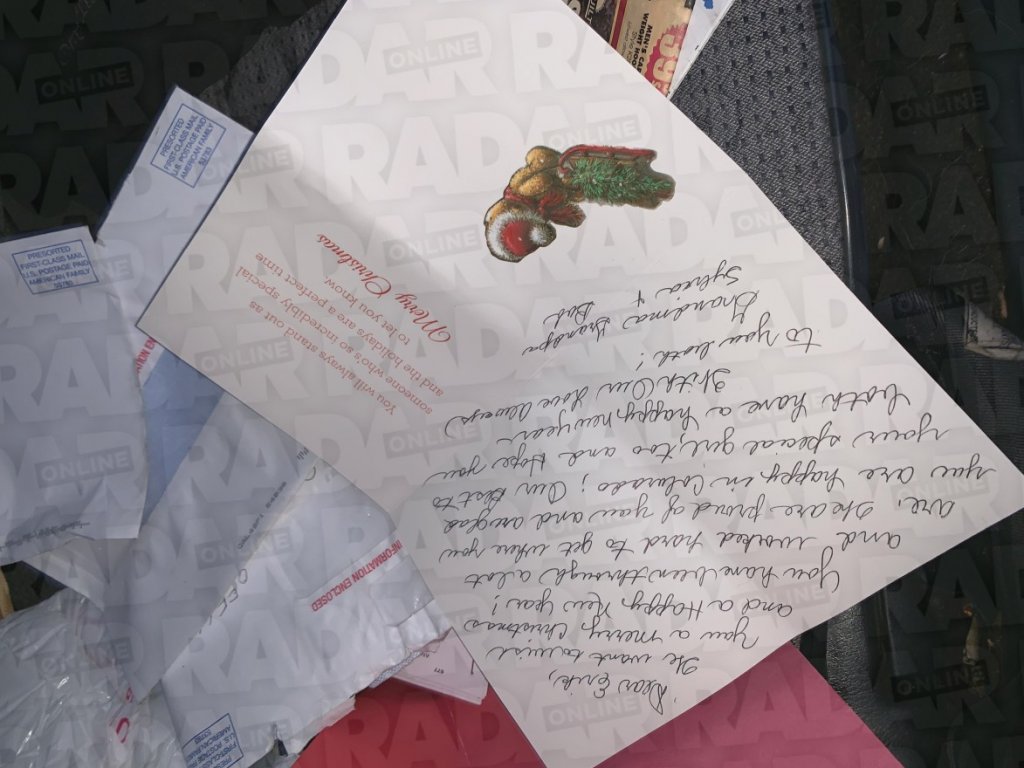 Dear Erik,
We want to wish
You a merry Christmas
and a Happy New Year!
You have been through a lot
and worked hard to get where you
are. We are proud of you and so glad
you are happy in Colorado; Our best to
your special girl, too and hope you
both have a happy new year-
With Our Love always
to you both!
Grandma Grandpa
Sylvia + Bob
You will always stand out as
someone who's so incredibly special
and the holidays are a perfect time
to let you know
Merry Christmas
PRESORTED
FIRST-CLASS MAIL
U.S. POSTAGE PAID
AMERICAN FAMILY
53783
PRESORTED
FIRST-CLASS MAIL
U.S. POSTAGE PAID
AMERICAN FAMILY
53783
INFORMATION ENCLOSED
RADAR
ONLINE